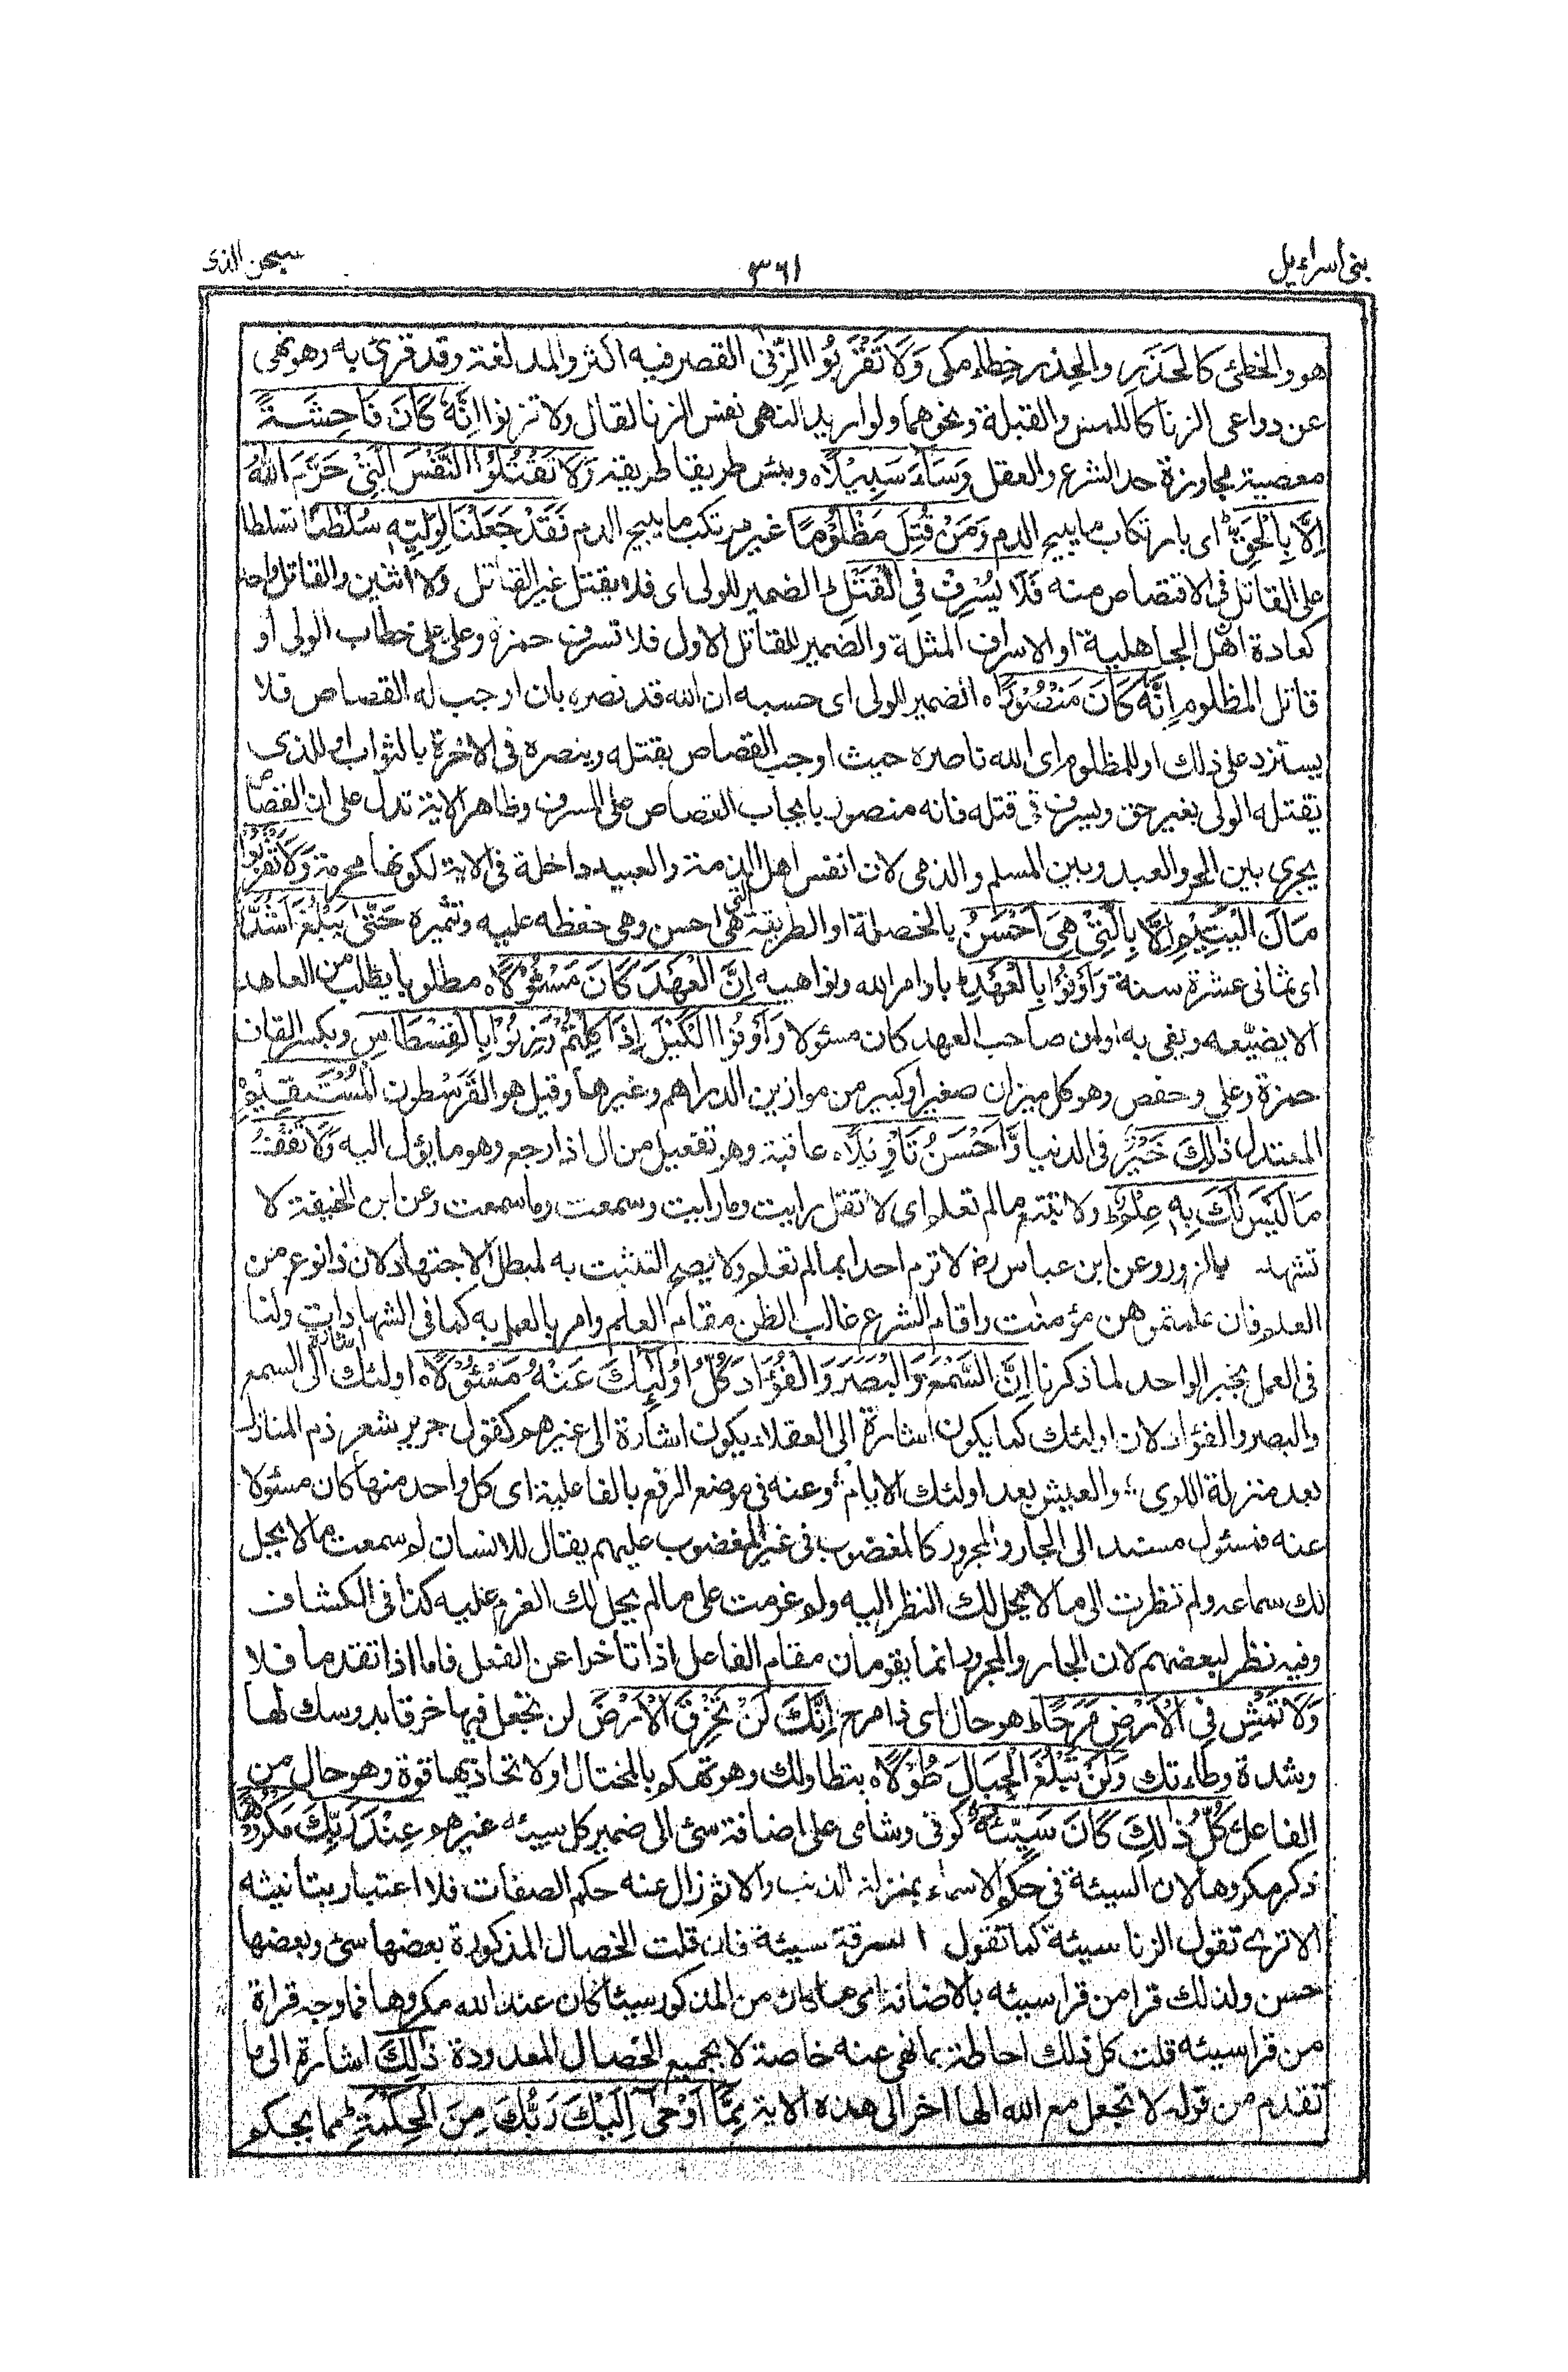 بنی اسراءیل ۳۶۱ سبحن الذی
هو والخطئ كالحَذَر والحِذْر خِطاء مكی وَلَا تَقْرَبُوا الزِّنٰى القصر فيه اكثر والمد لغة وقد قرئ به وهو نهی
عن دواعی الزنا كاللمس والقبلة ونحوهما ولو اريد النهی نفس الزنا لقال ولا تزنوا اِنَّهٗ كَانَ فَاحِشَةً
معصية مجاوزة حد الشرع والعقل وَسَاءَ سَبِيْلًاه وبئس طريقا طريقه وَلَا تَقْتُلُوا النَّفْسَ الَّتِيْ حَرَّمَ اللهُ
اِلَّا بِالْحَقِّ ط ای بارتكاب ما يبيح الدم وَمَنْ قُتِلَ مَظْلُوْمًا غير مرتكب ما يبيح الدم فَقَدْ جَعَلْنَا لِوَلِيِّهٖ سُلْطٰنًا تسلطا
علی القاتل فی الاقتصاص منه فَلَا يُسْرِفْ فِي الْقَتْلِ ط الضمير للولی ای فلا يقتل غير القاتل ولا اثنين والقاتل واحد
كعادة اهل الجاهلية او الاسراف المثلة والضمير للقاتل الاول فلا تسرف حمزة وعلی علی خطاب الولی او
قاتل المظلوم اِنَّهٗ كَانَ مَنْصُوْرًا ه الضمير للولی ای حسبه ان الله قد نصره بان اوجب له القصاص فلا
يستزد علی ذلك او للمظلوم ای الله ناصره حيث اوجب القصاص بقتله وينصره فی الاخرة بالثواب او للذی
يقتله الولی بغير حق ويسرف فی قتله فانه منصور بايجاب القصاص علی المسرف وظاهر الاية تدل علی ان القصاص
يجری بين الحر والعبد وبين المسلم والذمی لان انفس اهل الذمة والعبيد داخلة فی الاية لكونها محرمة وَلَا تَقْرَبُوْا
مَالَ الْيَتِيْمِ اِلَّا بِالَّتِيْ هِيَ اَحْسَنُ بالخصلة او الطريقة التی هی احسن وهی حفظه عليه وتثميره حَتّٰى يَبْلُغَ اَشُدَّهٗ
ای ثمانی عشرة سنة وَاَوْفُوْا بِالْعَهْدِ ج باوامر الله ونواهيه اِنَّ الْعَهْدَ كَانَ مَسْئُوْلًا ه مطلوبا يطلب من العاهد
الا يضيّعه ويفی به او ان صاحب العهد كان مسئولا وَاَوْفُوا الْكَيْلَ اِذَا كِلْتُمْ وَزِنُوْا بِالْقِسْطَاسِ وبكسر القاف
حمزة وعلی وحفص وهو كل ميزان صغير او كبير من موازين الدراهم وغيرها وقيل هو القَرَسْطون الْمُسْتَقِيْمِ
المعتدل ذٰلِكَ خَيْرٌ فی الدنيا وَّاَحْسَنُ تَاْوِيْلًا ه عاقبة وهو تفعيل من ال اذا رجع وهو ما يؤل اليه وَلَا تَقْفُ
مَا لَيْسَ لَكَ بِهٖ عِلْمٌ ط ولا تتبع ما لم تعلم ای لا تقل رايت وما رايت وسمعت وما سمعت وعن ابن الحنيفة لا
تشهد بالزور وعن ابن عباس رض لا ترم احدا بما لم تعلم ولا يصح التشبث به لمبطل الاجتهاد لان ذا نوع من
العلم فان علمتموهن مؤمنٰت واقام الشرع غالب الظن مقام العلم وامر بالعمل به كما فی الشهادات ولنا
فی العمل بخبر الواحد لما ذكرنا اِنَّ السَّمْعَ وَالْبَصَرَ وَالْفُؤَادَ كُلُّ اُولٰٓئِكَ عَنْهُ مَسْئُوْلًا ه اولئك اشارة الی السمع
والبصر والفؤاد لان اولئك كما يكون اشارة الی العقلاء يكون اشارة الی غيرهم كقول جرير شعر ذم المنازل
بعد منزلة اللوی ؛ والعيش بعد اولئك الايام ؛ وعنه فی موضع الرفع بالفاعلية ای كل واحد منها كان مسئولا
عنه فمسئول مسند الی الجار والمجرور كالمغضوب فی غير المغضوب عليهم يقال للانسان لم سمعت ما لا يحل
لك سماعه ولم نظرت الی ما لا يحل لك النظر اليه ولم عزمت علی ما لم يحل لك العزم عليه كذا فی الكشاف
وفيه نظر لبعضهم لان الجار والمجرور انما يقومان مقام الفاعل اذا تاخرا عن الفعل فاما اذا تقدما فلا
وَلَا تَمْشِ فِي الْاَرْضِ مَرَحًا ط هو حال ای ذا مرح اِنَّكَ لَنْ تَخْرِقَ الْاَرْضَ لن تجعل فيها خرقا بدوسك لها
وشدة وطاءتك وَلَنْ تَبْلُغَ الْجِبَالَ طُوْلًا ه بتطاولك وهو تهكم بالمختال او لا تحاذيها قوة وهو حال من
الفاعل كُلُّ ذٰلِكَ كَانَ سَيِّئُهٗ كوفی وشامی علی اضافة سئ الی ضمير كل سيئة غيرهم عِنْدَ رَبِّكَ مَكْرُوْهًا
ذكر مكروها لان السيئة فی حكم الاسماء بمنزلة الذنب والاثم زال عنه حكم الصفات فلا اعتبار بتانيثه
الا تری تقول الزنا سيئة كما تقول السرقة سيئة فان قلت الخصال المذكورة بعضها سئ وبعضها
حسن ولذلك قرا من قرا سيئه بالاضافة ای ما كان من المذكور سيئا كان عند الله مكروها فما وجه قراة
من قرا سيئة قلت كل ذلك احاطة بما نهی عنه خاصة لا بجميع الخصال المعدودة ذٰلِكَ اشارة الی ما
تقدم من قوله لا تجعل مع الله الها اخر الی هذه الاية مِمَّا اَوْحٰى اِلَيْكَ رَبُّكَ مِنَ الْحِكْمَةِ ط مما يحكم